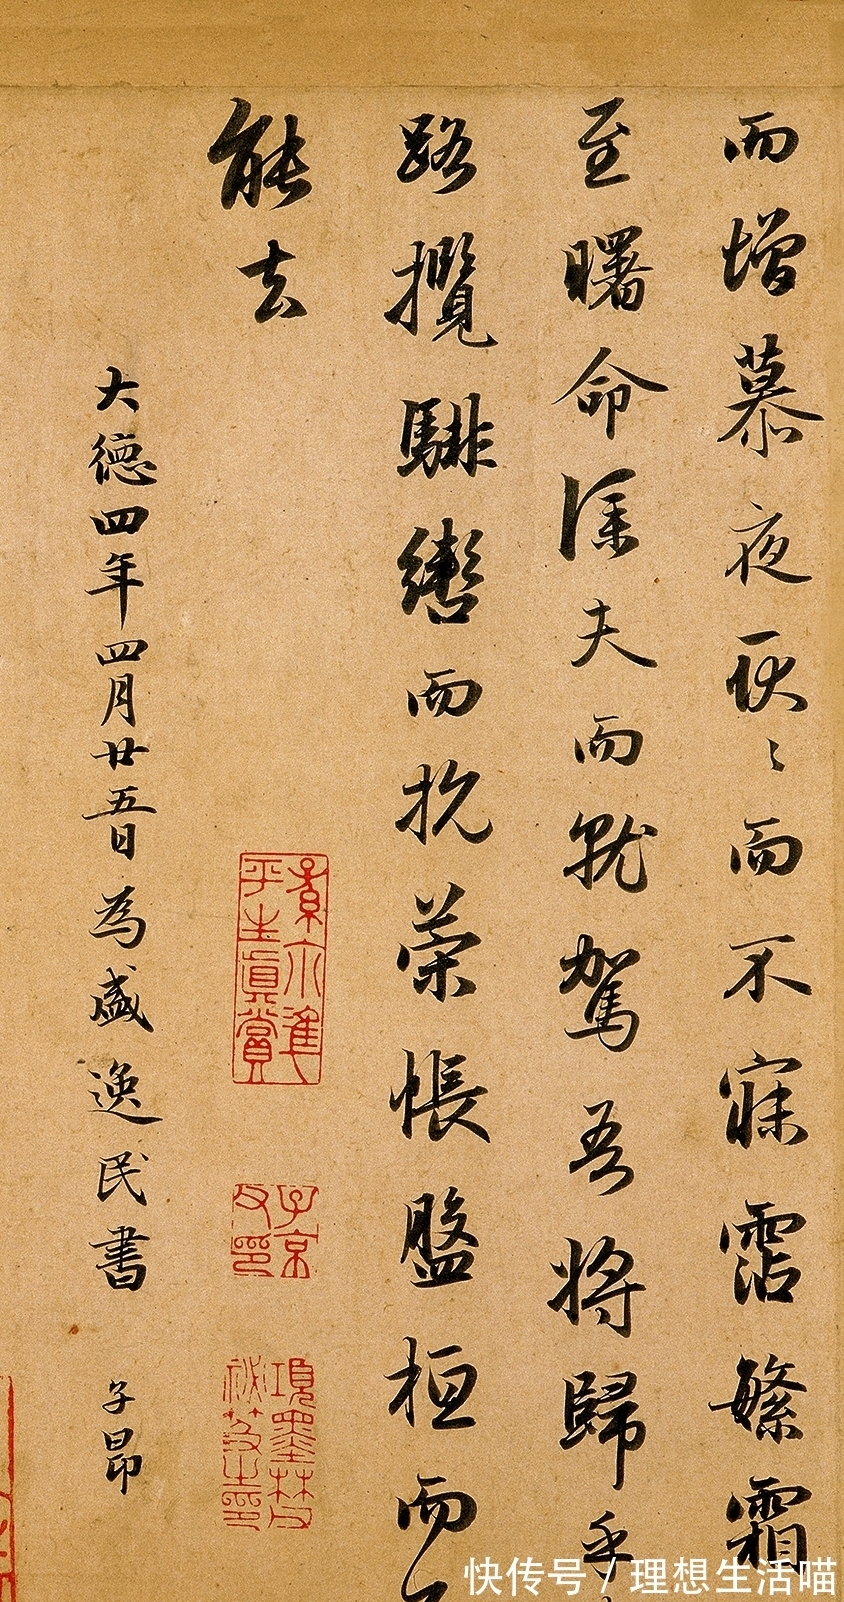 而增慕夜耿〻而不寐霑繁霜
至曙命僕夫而就駕吾將歸乎
路攬騑轡而抗策悵盤桓而
能去
大德四年四月廿五日為盛逸民書 子昂
平生真賞
子京父印
項墨林父秘笈之印
快传号 / 理想生活喵